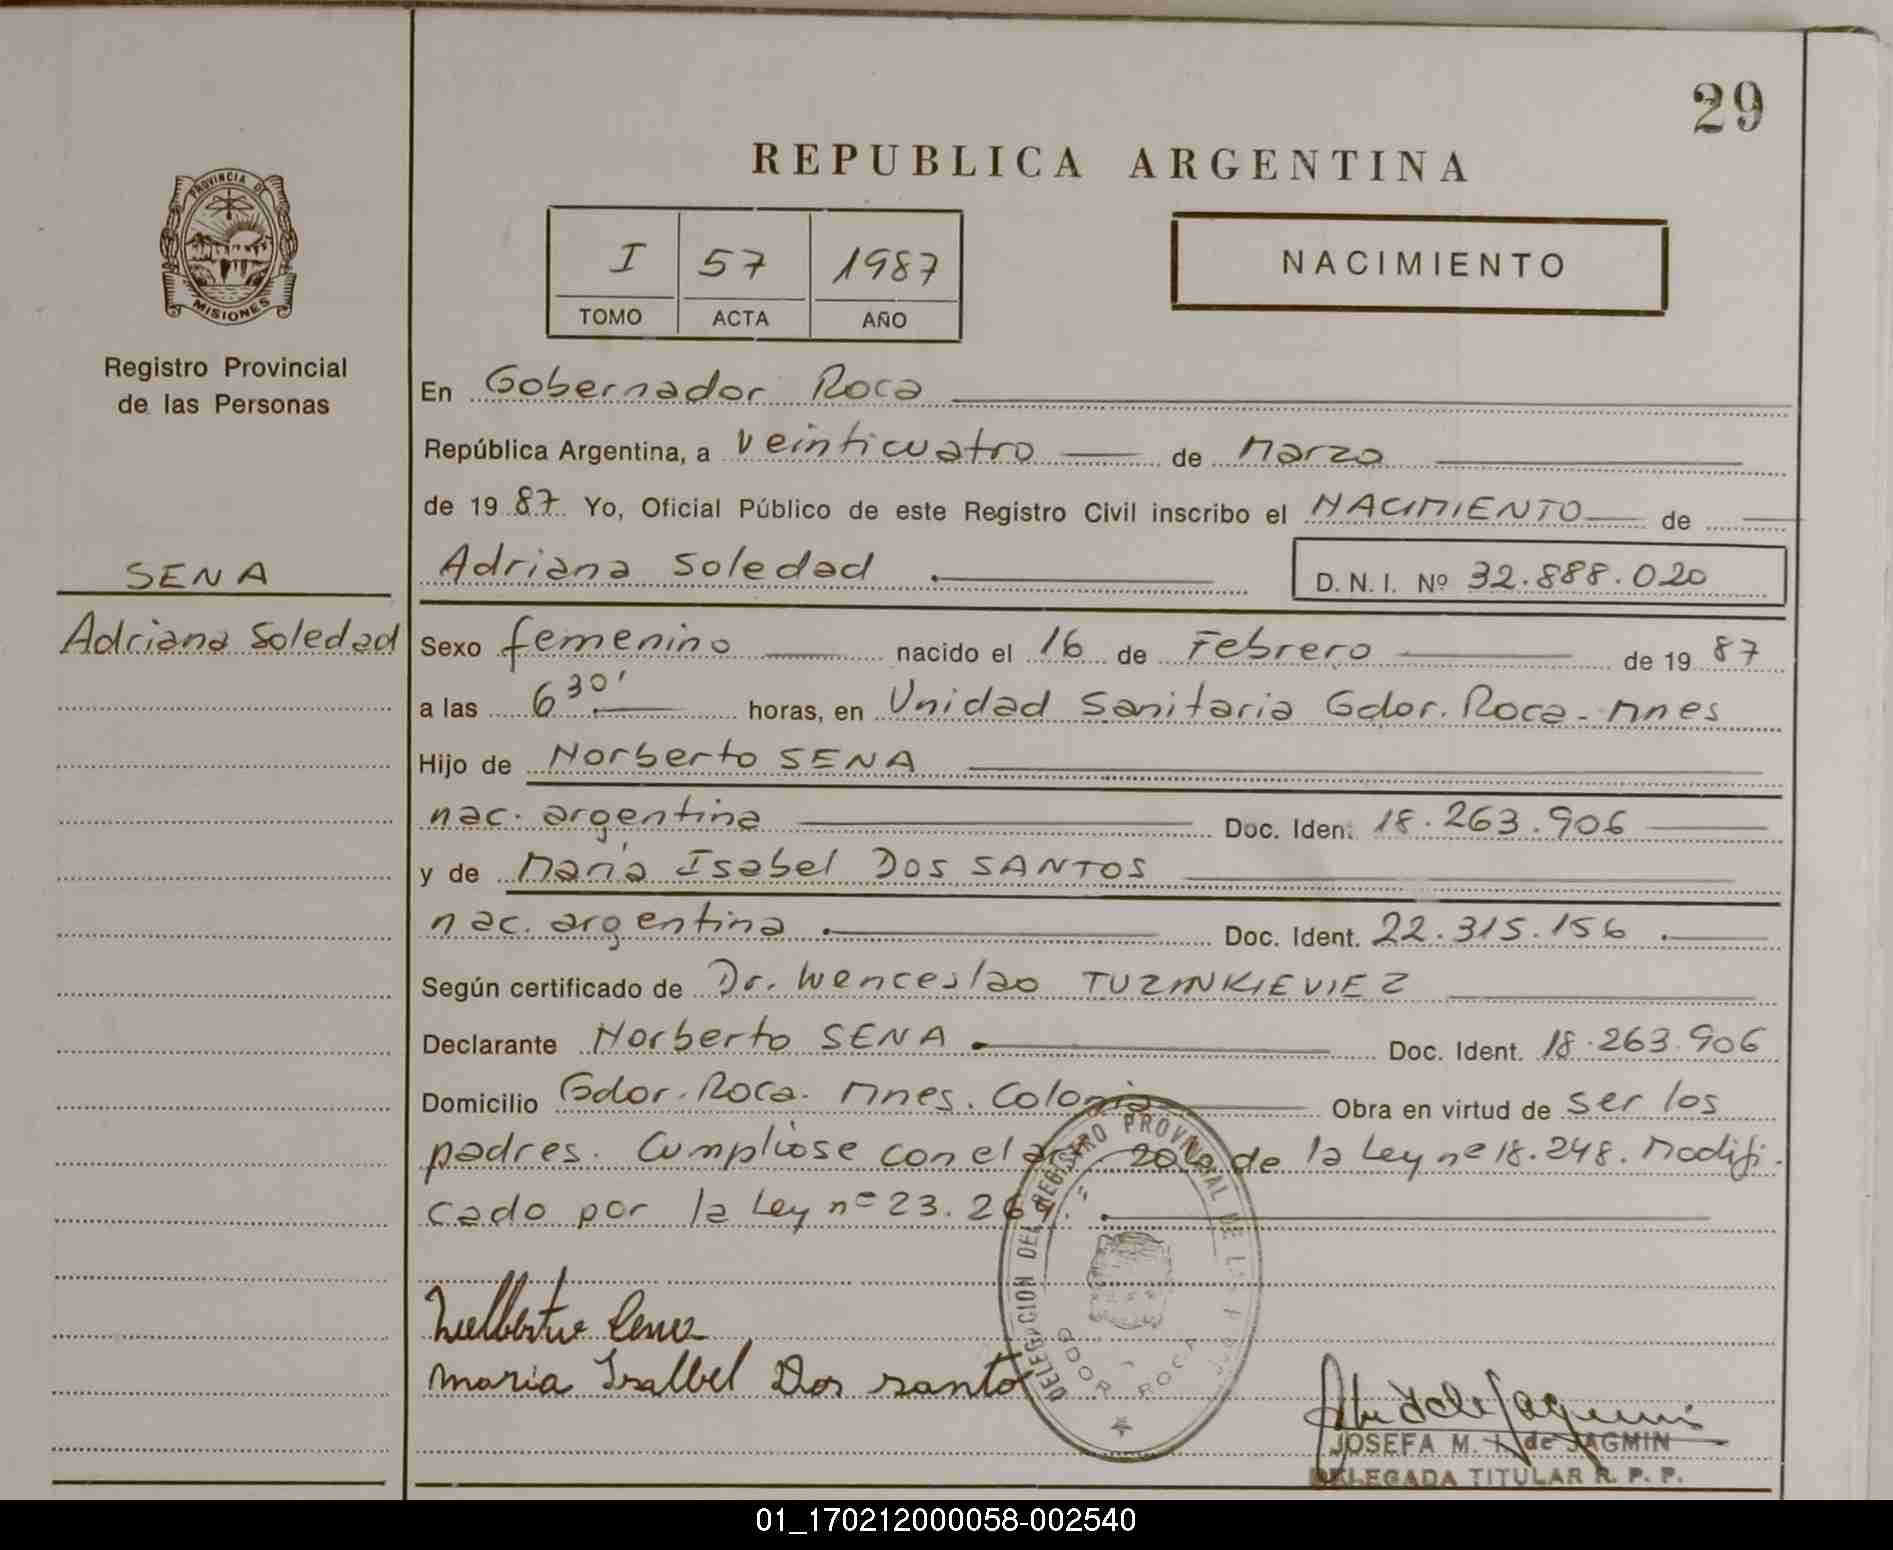 29
REPUBLICA ARGENTINA
PROVINCIA DE
MISIONES
Registro Provincial
de las Personas
I 57 1987
TOMO ACTA AÑO
NACIMIENTO
En Gobernador Roca
República Argentina, a veinticuatro de Marzo
de 19 87 Yo, Oficial Público de este Registro Civil inscribo el NACIMIENTO de
SENA
Adriana Soledad
Adriana Soledad
D. N. I. Nº 32.888.020
Sexo femenino nacido el 16 de Febrero de 19 87
a las 6 30' horas, en Unidad Sanitaria Gdor. Roca - Mnes
Hijo de Norberto SENA
nac. argentina Doc. Iden. 18.263.906
y de María Isabel DOS SANTOS
nac. argentina Doc. Ident. 22.315.156
Según certificado de Dr. Wenceslao TUZINKIEVIEZ
Declarante Norberto SENA Doc. Ident. 18.263.906
Domicilio Gdor. Roca. Mnes. Colonia Obra en virtud de ser los
padres. Cumpliose con el 20 de la Ley nº 18.248. Modifi-
cado por la Ley nº 23.264.
DELEGACION DEL REGISTRO PROVINCIAL DE
GDOR ROCA
Maria Isabel Dos santo
JOSEFA M. I. de JAGMIN
DELEGADA TITULAR R. P. P.
01_170212000058-002540